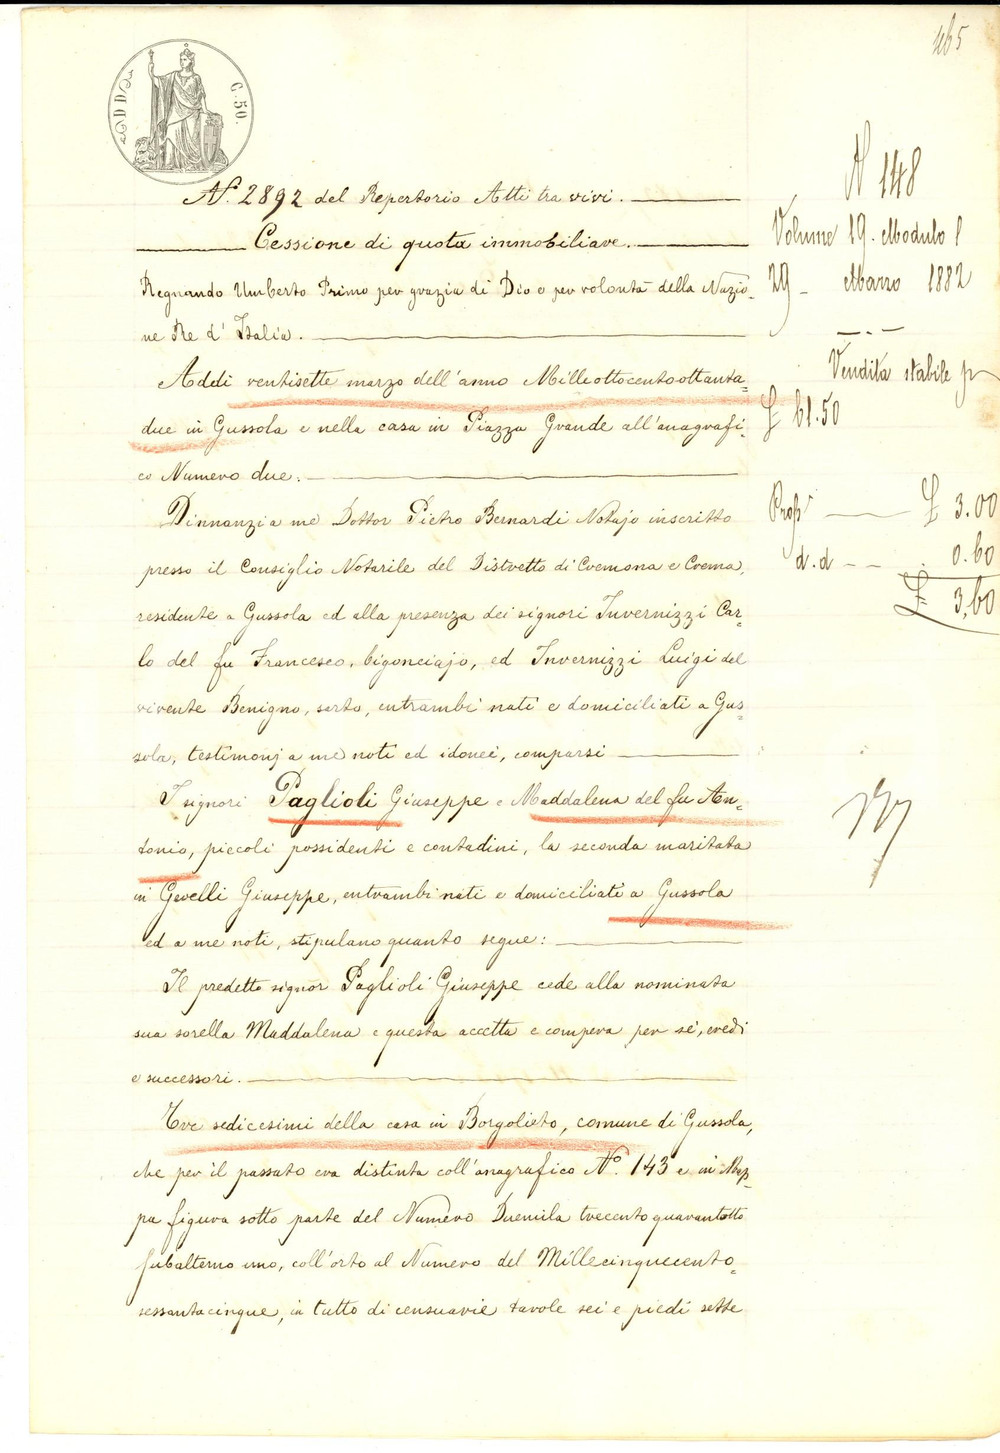 465
C. 50.
N. 2892 del Repertorio Atti tra vivi.
Cessione di quota immobiliare.
Regnando Umberto Primo per grazia di Dio e per volontà della Nazio-
ne Re d'Italia.
Addì ventisette marzo dell'anno Milleottocentoottanta-
due in Gussola e nella casa in Piazza Grande all'anagrafi-
co Numero due.
Dinnanzi a me Dottor Pietro Bernardi Notajo inscritto
presso il Consiglio Notarile del Distretto di Cremona e Crema,
residente a Gussola ed alla presenza dei signori Invernizzi Car-
lo del fu Francesco, bigonciajo, ed Invernizzi Luigi del
vivente Benigno, sarto, entrambi nati e domiciliati a Gus-
sola, testimonj a me noti ed idonei, comparsi
I signori Paglioli Giuseppe e Maddalena del fu An-
tonio, piccoli possidenti e contadini, la seconda maritata
in Gerelli Giuseppe, entrambi nati e domiciliati a Gussola
ed a me noti, stipulano quanto segue:
Il predetto signor Paglioli Giuseppe cede alla nominata
sua sorella Maddalena e questa accetta e compera per sé, eredi
e successori.
Tre sedicesimi della casa in Borgolieto, comune di Gussola,
che per il passato era distinta coll'anagrafico N.o 143 e in Map-
pa figura sotto parte del Numero Duemila trecentoquarantotto
subalterno uno, coll'orto al Numero del Millecinquecento-
sessantacinque, in tutto di censuarie tavole sei e piedi sette
N 148
Volume 19. Modulo 1
29 - Marzo 1882
Vendita stabile p
£ 61.50
Prop £ 3.00
d.d - - 0.60
£ 3,60